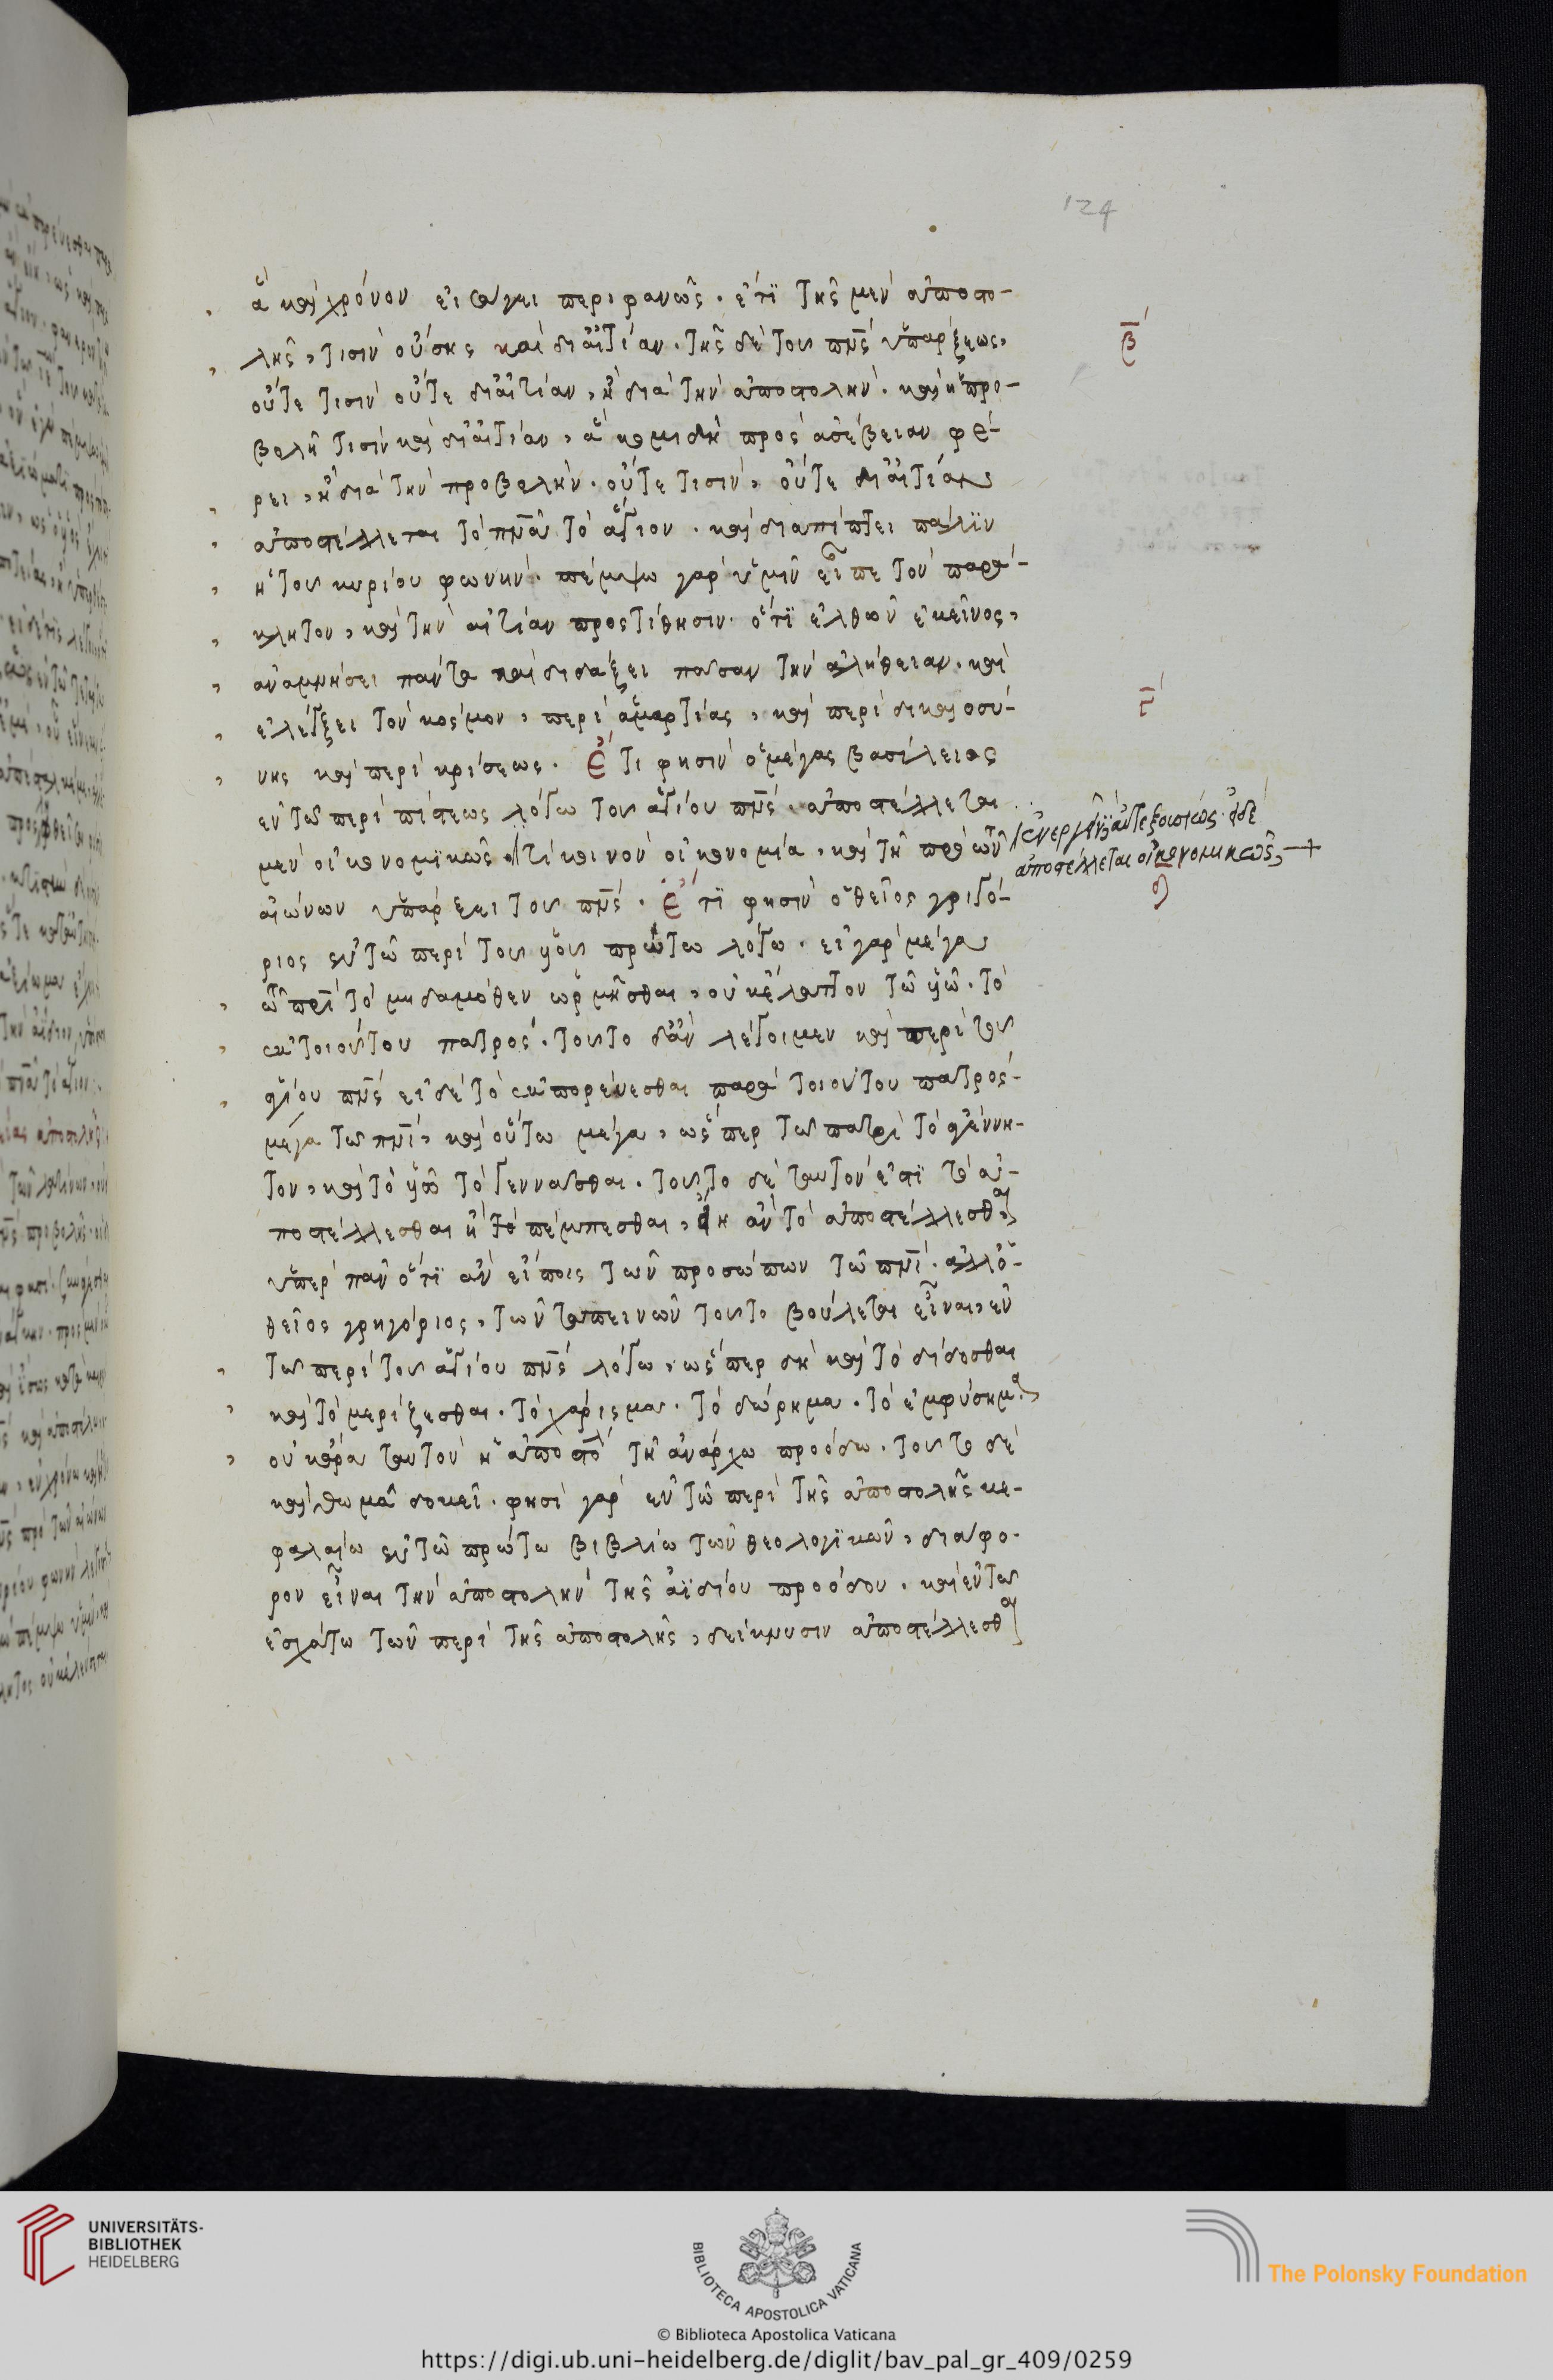 124
ἃ καὶ χρόνον εἰσάγει περιφανῶς. ἔτι τῆς μὲν ἀποστο-
λῆς, τισὶν οὔσης καὶ δι' αἰτίαν. τῆς δὲ τοῦ πν̅ς ὑπάρξεως,
οὔτε τισὶν οὔτε δι' αἰτίαν, ἢ διὰ τὴν ἀποστολήν. καὶ ἡ προ-
βολὴ τισὶν καὶ δι' αἰτίαν, ἃ κομιδῇ πρὸς ἀσέβειαν φέ-
ρει, ἢ διὰ τὴν προβολήν. οὔτε τισὶν, οὔτε δι' αἰτίαν
ἀποστέλλεται τὸ πν̅α τὸ ἅγιον. καὶ διαπίπτει πάλιν
ἡ τοῦ κυρίου φωνὴ. πέμψω γὰρ ὑμῖν εἶπε τὸν παρά-
κλητον, καὶ τὴν αἰτίαν προστίθησιν. ὅτι ἐλθὼν ἐκεῖνος,
ἀναμνήσει πάντα καὶ διδάξει πᾶσαν τὴν ἀλήθειαν. καὶ
ἐλέγξει τὸν κόσμον, περὶ ἁμαρτίας, καὶ περὶ δικαιοσύ-
νης καὶ περὶ κρίσεως. Ἔτι φησὶν ὁ μέγας βασίλειος
ἐν τῷ περὶ πίστεως λόγω τοῦ ἁγίου πν̅ς. ἀποστέλλεται
μὲν οἰκονομικῶς τί κοινὸν οἰκονομία, καὶ τῇ πρὸ τῶν
αἰώνων ὑπάρξει τοῦ πν̅ς. Ἔτι φησὶν ὁ θεῖος γριγό-
ριος ἐν τῷ περὶ τοῦ υἱοῦ πρώτω λόγω. εἰ γὰρ μέγα
τῷ πρ̅ι τὸ μηδαμόθεν ὡρμῆσθαι, οὐκ ἔλαττον τῷ υἱῷ. τὸ
ἐκ τοιούτου πατρός. τοῦτο δ' ἂν λέγοιμεν καὶ περὶ τοῦ
ἁγίου πν̅ς εἰ δὲ τὸ ἐκπορεύεσθαι παρὰ τοιούτου πατρὸς-
μέγα τῷ πν̅ι, καὶ οὕτω μέγα, ὥσπερ τῷ πατρὶ τὸ ἀγέννη-
τον, καὶ τῷ υἱῷ τὸ γεννᾶσθαι. τοῦτο δὲ ταυτόν ἐστι τὸ ἀ-
ποστέλλεσθαι ἢ τὸ πέμπεσθαι, εἴη ἂν τὸ ἀποστέλλεσθαι
ὑπὲρ πᾶν ὅτι ἂν εἴποις τῶν προσώπων τῷ πν̅ι. ἀλλ' ὁ
θεῖος γρηγόριος, τῶν ταπεινῶν τοῦτο βούλεται εἶναι, ἐν
τῷ περὶ τοῦ ἁγίου πν̅ς λόγω, ὥσπερ δὴ καὶ τὸ δίδοσθαι
καὶ τὸ μερίζεσθαι. τὸ χάρισμα. τὸ δώρημα. τὸ ἐμφύσημα
οὐκ ἄρα ταυτὸν ἡ ἀποστολὴ τῇ ἀνάρχω προόδω. τοῦτο δὲ
καὶ θωμᾶ δοκεῖ. φησὶ γὰρ ἐν τῷ περὶ τῆς ἀποστολῆς κε-
φαλαίω ἐν τῷ πρώτω βιβλίω τῶν θεολογικῶν, διάφο-
ρον εἶναι τὴν ἀποστολὴν τῆς ἀϊδίου προόδου. καὶ ἐν τῷ
ἐσχάτω τῶν περὶ τῆς ἀποστολῆς, δείκνυσιν ἀποστέλλεσθαι
β̅
γ̅
ἐνεργεῖ αὐτεξουσίως. εἰ δὲ
ἀποστέλλεται οἰκονομικῶς,
UNIVERSITÄTS-
BIBLIOTHEK
HEIDELBERG
BIBLIOTECA APOSTOLICA VATICANA
The Polonsky Foundation
© Biblioteca Apostolica Vaticana
https://digi.ub.uni-heidelberg.de/diglit/bav_pal_gr_409/0259